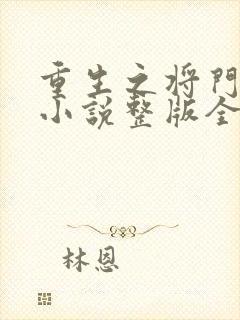 重生之将門
小説整版全
林恩